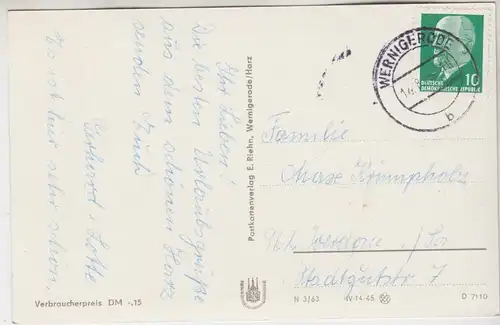 Ihr Lieben!
Die besten Urlaubsgrüße
aus dem schönen Harz
senden Euch
Lotte
Es ist hier sehr schön.
Postkartenverlag E. Riehn, Wernigerode/Harz
WERNIGERODE
b
10
DEUTSCHE
DEMOKRATISCHE REPUBLIK
Familie
Stadtgutstr. 7
Verbraucherpreis DM -.15
N 3/63 IV-14-45
D 7110